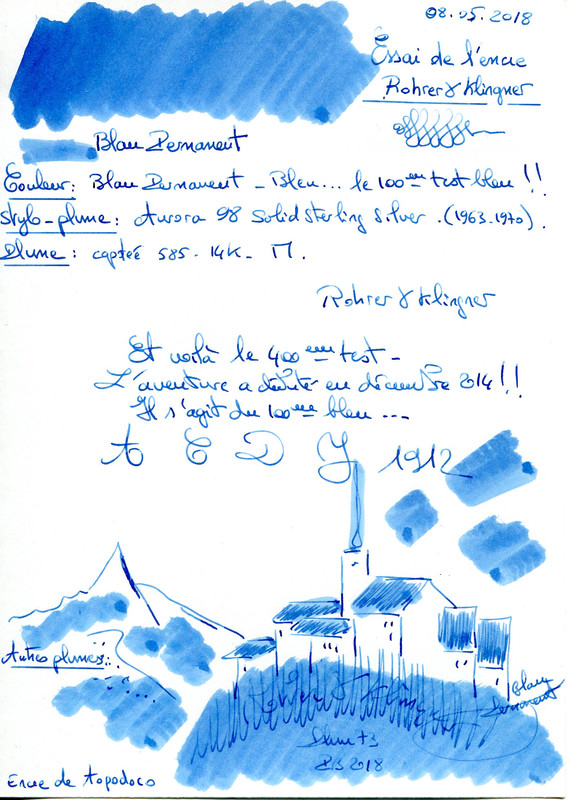 08.05.2018
Essai de l'encre
Rohrer & Klingner
Blau Permanent
Couleur: Blau Permanent - Bleu... le 100em test bleu !!
Stylo-plume: Aurora 98 Solid Sterling Silver. (1963-1970).
Plume: captée 585. 14K - M.
Rohrer & Klingner
Et voilà le 400eme test -
L'aventure a débuté en décembre 2014!!
Il s'agit du 100eme bleu ---
A C D Y 1912
Autres plumes:
Blau
Permanent
2018
Encre de Topodoco